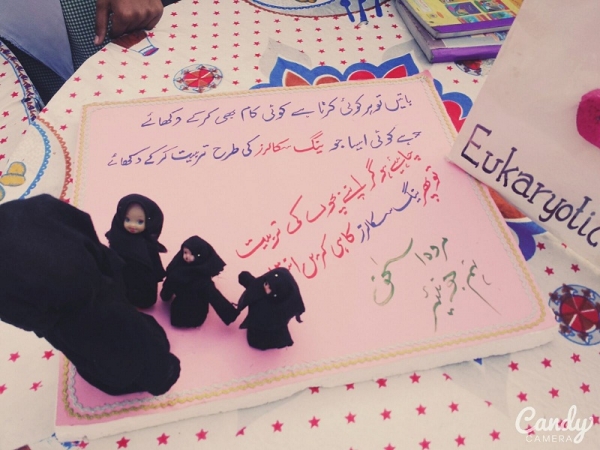 باتیں تو ہر کوئی کرتا ہے کوئی کام بھی کر کے دکھائے
ہے کوئی ایسا جو ینگ سکالرز کی طرح تربیت کر کے دکھائے
چاہتے ہو گر اپنے بچوں کی تربیت
تو پھر ینگ سکالرز کا ہی کریں
Eukaryotic
Candy
CAMERA